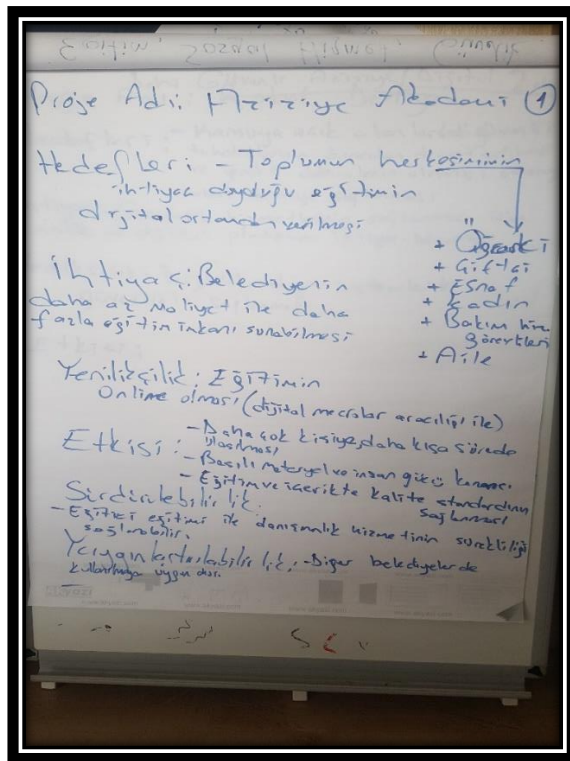 Proje Adı: Aziziye Akademi 1
Hedefleri - Toplumun her kesiminin
ihtiyaç duyduğu eğitimin
dijital ortamdan verilmesi
+ Öğrenci
+ Çiftçi
+ Esnaf
+ Kadın
+ Bakım hiz.
görevlileri
+ Aile
İhtiyaç: Belediyenin
daha az maliyet ile daha
fazla eğitim imkanı sunabilmesi
Yenilikçilik: Eğitimin
Online olması (dijital mecralar aracılığı ile)
Etkisi: - Daha çok kişiye, daha kısa sürede
ulaşılması
- Basılı materyal ve insan gücü kazancı
- Eğitim ve içerikte kalite standardının
sağlanması
Sürdürülebilirlik:
- Eğitici eğitimi ile danışmanlık hizmetinin sürekliliği
sağlanabilir.
Yaygınlaştırılabilirlik: - Diğer belediyelerde
kullanılmaya uygundur.